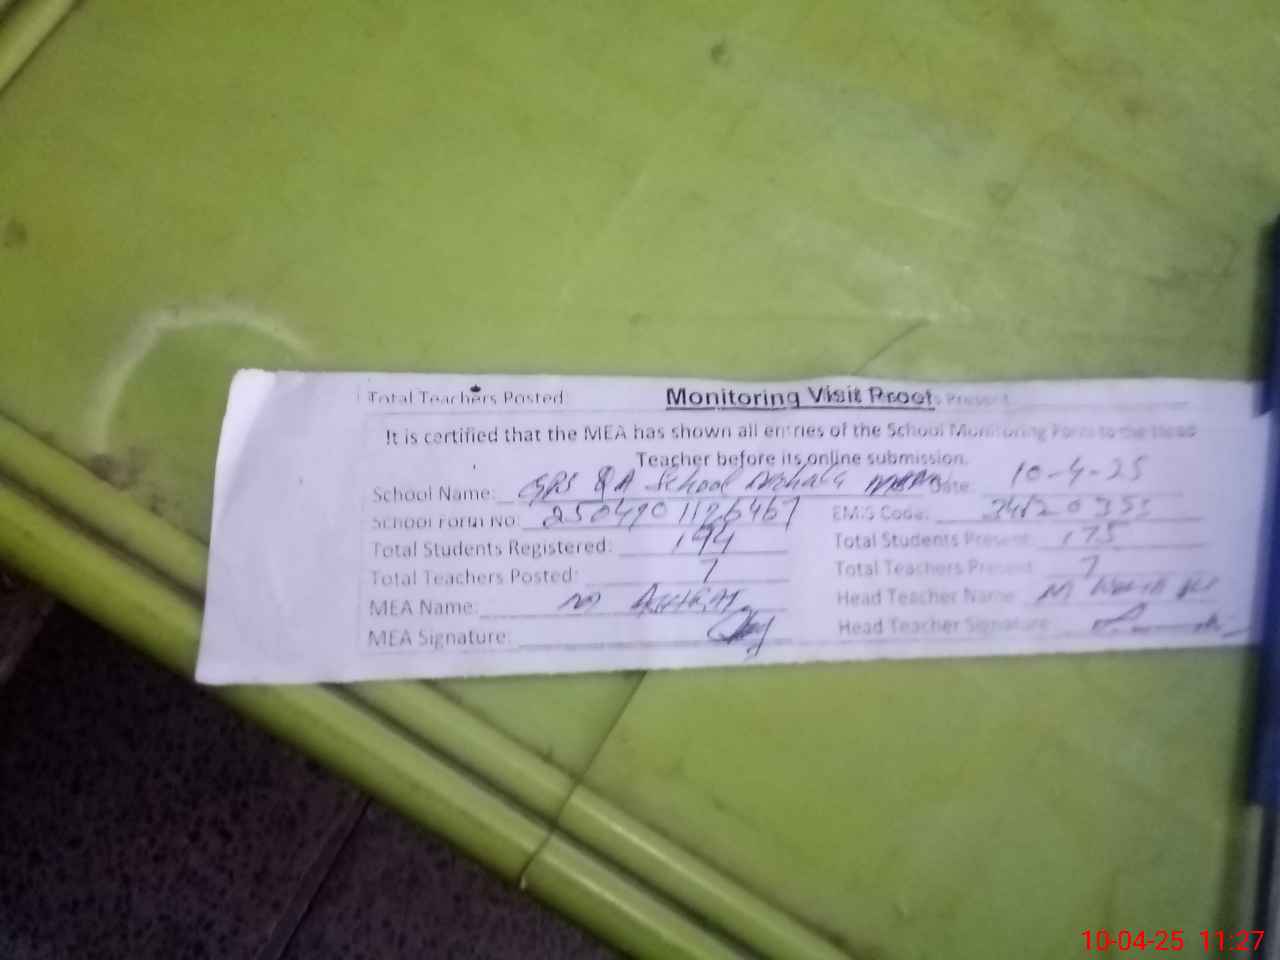 Total Teachers Posted: Monitoring Visit Proof Present
It is certified that the MEA has shown all entries of the School Monitoring Form to the Head
Teacher before its online submission.
School Name: GPS Q A School Date: 10-4-25
School Form No: EMIS Code:
Total Students Registered: 194 Total Students Present: 175
Total Teachers Posted: 7 Total Teachers Present: 7
MEA Name: M Head Teacher Name: M
MEA Signature: Head Teacher Signature:
10-04-25 11:27